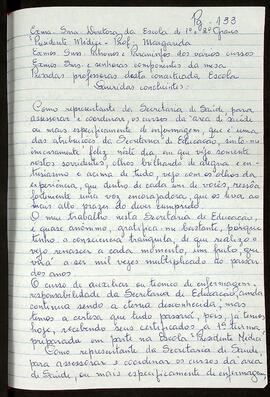 Pg - 133
Exma. Snra. Diretora da Escola de 1º e 2º Graus
Presidente Médici - Profª Margarida
Exmos Snrs. Patronos e Paraninfos dos vários cursos
Exmos Snrs. e senhoras componentes da mesa
Prezadas professoras desta conceituada Escola
Queridas concluintes:
Como representante da Secretaria de Saúde, para
assessorar e coordenar, os cursos da área de saúde
ou mais especificamente de enfermagem, que é uma
das atribuições da Secretaria de Educação, sinto-me
imensamente feliz, neste dia, em que vejo somente
rostos sorridentes, olhos brilhando de alegria e en-
tusiasmo e acima de tudo, vejo com os olhos da
experiência, que dentro de cada um de vocês, ressôa
fortemente uma voz encorajadora, que os leva ao
mais alto prazer do dever cumprido.
O meu trabalho nesta Secretaria de Educação,
é quase anônimo, gratifica-me bastante, porque
tenho a consciência tranquila, de que realizo e
vejo renascer a cada momento, um fruto, que
virá a ser mil vezes multiplicado do passar
dos anos.
O curso de auxiliar ou técnico de enfermagem,
responsabilidade da Secretaria de Educação, ainda
continua sendo a eterna desconhecida, mas
temos a certeza que tudo passará, pois, já temos
hoje, recebendo seus certificados a 1ª turma,
preparada em parte na Escola "Presidente Médici"
Como representante da Secretaria de Saúde,
para assessorar e coordenar os cursos da área
de Saúde, ou mais especificamente de enfermagem,